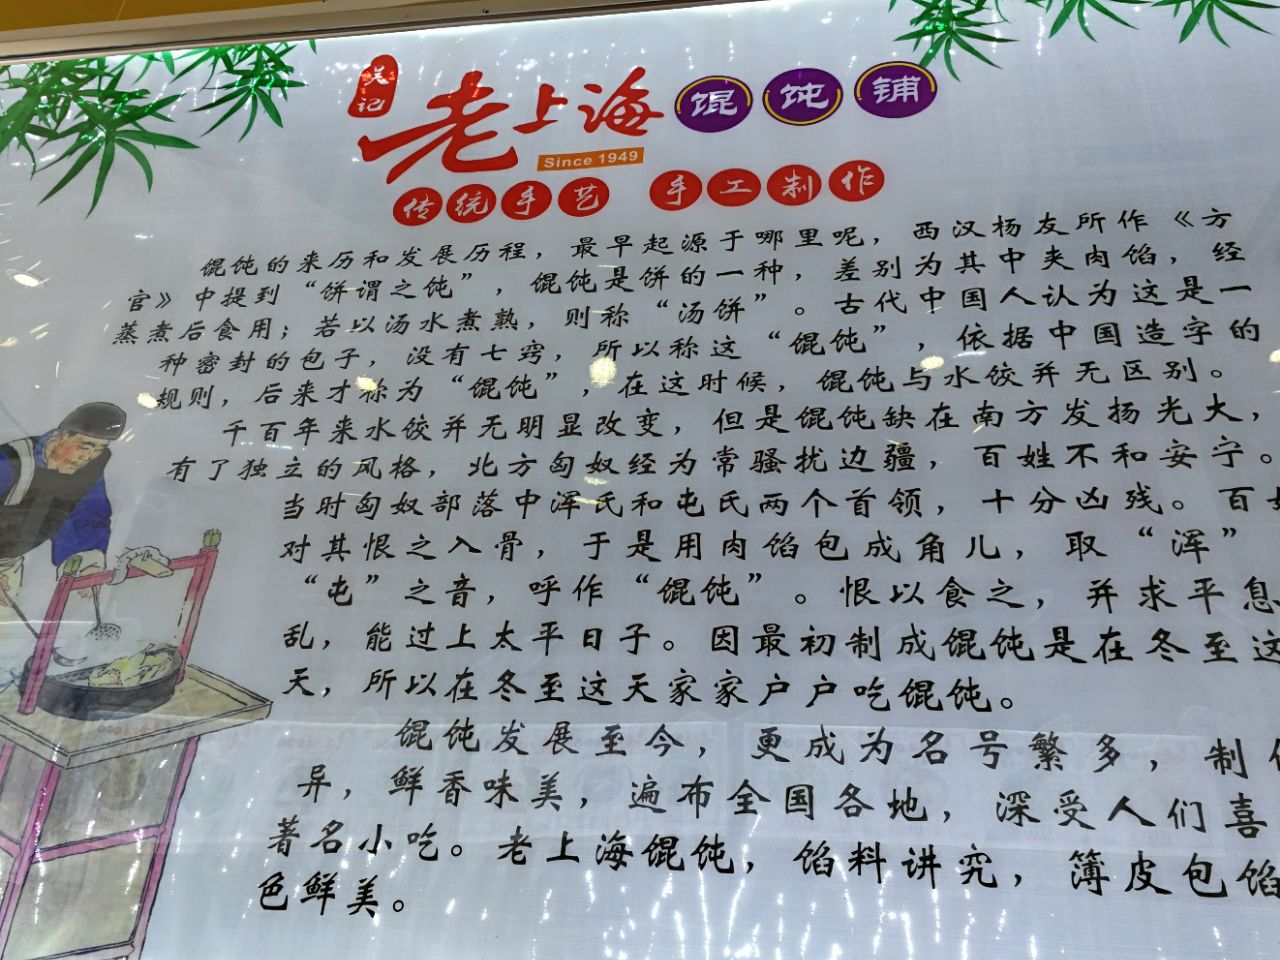 吴记
老上海馄饨铺
Since 1949
传统手艺 手工制作
馄饨的来历和发展历程，最早起源于哪里呢，西汉杨友所作《方
官》中提到“饼谓之饨”，馄饨是饼的一种，差别为其中夹肉馅，经
蒸煮后食用；若以汤水煮熟，则称“汤饼”。古代中国人认为这是一
种密封的包子，没有七窍，所以称这“馄饨”，依据中国造字的
规则，后来才称为“馄饨”，在这时候，馄饨与水饺并无区别。
千百年来水饺并无明显改变，但是馄饨缺在南方发扬光大，
有了独立的风格，北方匈奴经为常骚扰边疆，百姓不和安宁。
当时匈奴部落中浑氏和屯氏两个首领，十分凶残。百
对其恨之入骨，于是用肉馅包成角儿，取“浑”
“屯”之音，呼作“馄饨”。恨以食之，并求平息
乱，能过上太平日子。因最初制成馄饨是在冬至这
天，所以在冬至这天家家户户吃馄饨。
馄饨发展至今，更成为名号繁多，制
异，鲜香味美，遍布全国各地，深受人们喜
著名小吃。老上海馄饨，馅料讲究，簿皮包馅
色鲜美。